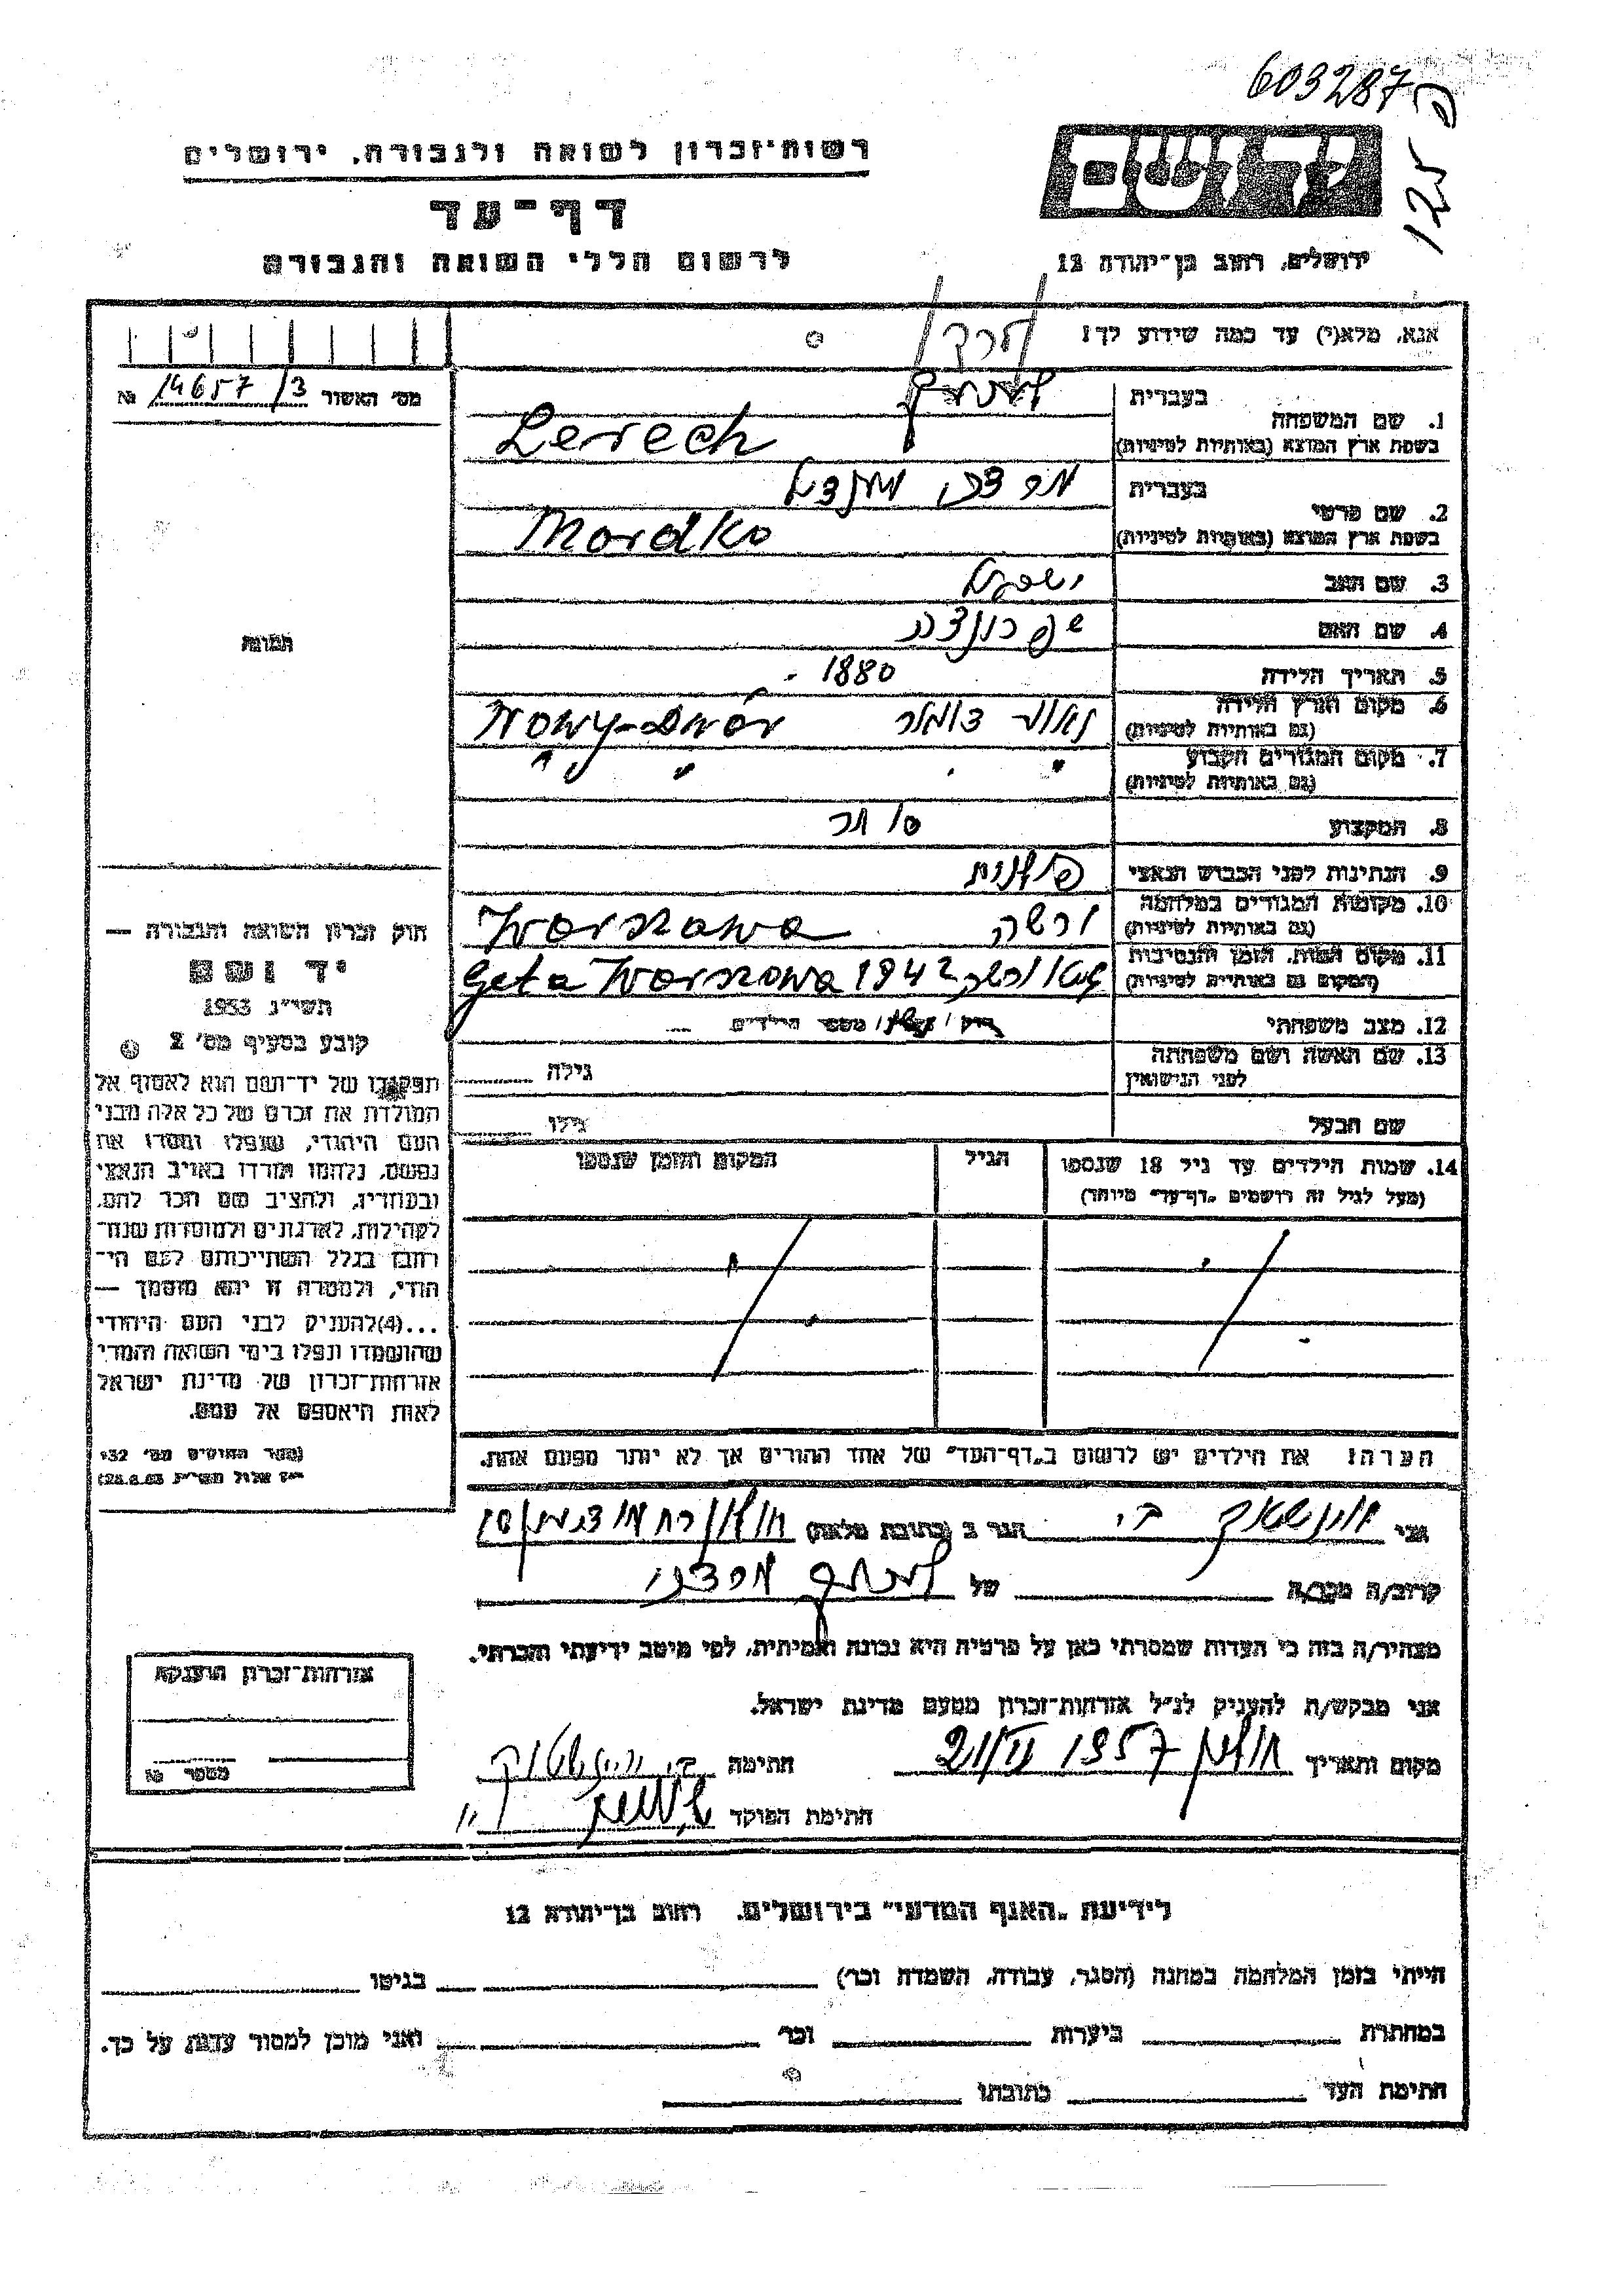 603287
125 פ
יד ושם
רשות־זכרון לשואה ולגבורה, ירושלים
דף־עד
לרשום חללי השואה והגבורה
ירושלים, רחוב בן־יהודה 12
אנא, מלא(י) עד כמה שידוע לך!
מס׳ האשור 14657/3 №
1. שם המשפחה
בעברית
בשפת ארץ המוצא (באותיות לטיניות) Lerech
2. שם פרטי
בעברית מרדכי
בשפת ארץ המוצא (באותיות לטיניות) Mordko
3. שם האב
4. שם האם
5. תאריך הלידה 1880
6. מקום וארץ הלידה
(גם באותיות לטיניות) Nowy-Dwór
7. מקום המגורים הקבוע
(גם באותיות לטיניות)
8. המקצוע סוחר
9. הנתינות לפני הכבוש הנאצי פולנית
10. מקומות המגורים במלחמה
(גם באותיות לטיניות) ורשה Warszawa
11. מקום המות, הזמן והנסיבות
(המקום גם באותיות לטיניות) גטו ורשה Geta Warszawa 1942
12. מצב משפחתי
מספר הילדים
13. שם האשה ושם משפחתה
לפני הנישואין
גילה
שם הבעל
גילו
14. שמות הילדים עד גיל 18 שנספו
(מעל לגיל זה רושמים „דף־עד״ מיוחד)
הגיל
המקום והזמן שנספו
הערה! את הילדים יש לרשום ב„דף־העד״ של אחד ההורים אך לא יותר מפעם אחת.
תמונה
חוק זכרון השואה והגבורה —
יד ושם
תשי״ג 1953
קובע בסעיף מס׳ 2
תפקידו של יד־ושם הוא לאסוף אל
המולדת את זכרם של כל אלה מבני
העם היהודי, שנפלו ומסרו את
נפשם, נלחמו ומרדו באויב הנאצי
ובעוזריו, ולהציב שם וזכר להם,
לקהילות, לארגונים ולמוסדות שנח־
רבו בגלל השתייכותם לעם הי־
הודי, ולמטרה זו יהא מוסמך —
...(4)להעניק לבני העם היהודי
שהושמדו ונפלו בימי השואה והמרי
אזרחות־זכרון של מדינת ישראל
לאות היאספם אל עמם.
(ספר החוקים מס׳ 132
אני
הגר ב (כתובת מלאה)
קרוב/ה מכר/ה
של מרדכי
מצהיר/ה בזה כי העדות שמסרתי כאן על פרטיה היא נכונה ואמיתית, לפי מיטב ידיעתי והכרתי.
אני מבקש/ת להעניק לנ״ל אזרחות־זכרון מטעם מדינת ישראל.
מקום ותאריך חולון 21/VI 1957
חתימה
חתימת הפוקד
אזרחות־זכרון הוענקה
מספר №
לידיעת „האגף המדעי״ בירושלים, רחוב בן־יהודה 12
הייתי בזמן המלחמה במחנה (הסגר, עבודה, השמדה וכו׳)
בגיטו
במחתרת
ביערות
וכו׳
ואני מוכן למסור עדות על כך.
חתימת העד
כתובתו